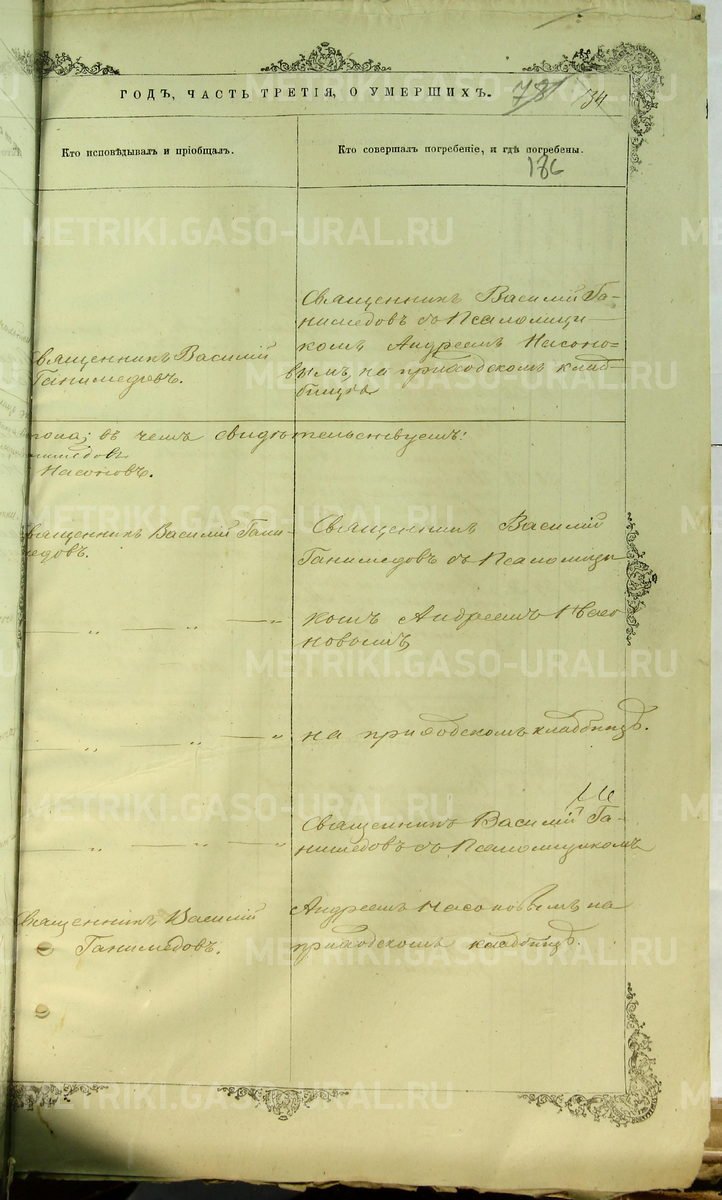 ГОДЪ, ЧАСТЬ ТРЕТІЯ, О УМЕРШИХЪ.
781 34
Кто исповѣдывалъ и пріобщалъ.
Кто совершалъ погребеніе, и гдѣ погребены.
186
Священникъ Василій Га-
нимедовъ съ Псаломщи-
комъ Андреемъ Насоно-
вымъ, на приходскомъ клад-
бищѣ
вященникъ Василій
Ганимедовъ.
въ чемъ свидѣтельствуемъ:
нимедовъ
Насоновъ.
вященникъ Василій Гани-
медовъ.
Священникъ Василій
Ганимедовъ съ Псаломщи
комъ Андреемъ Насо
новымъ,
на приходскомъ кладбищѣ.
Священникъ Василій Га-
нимедовъ съ Псаломщикомъ
Священникъ Василій
Ганимедовъ.
Андреемъ Насоновымъ на
приходскомъ кладбищѣ.
METRIKI.GASO-URAL.RU